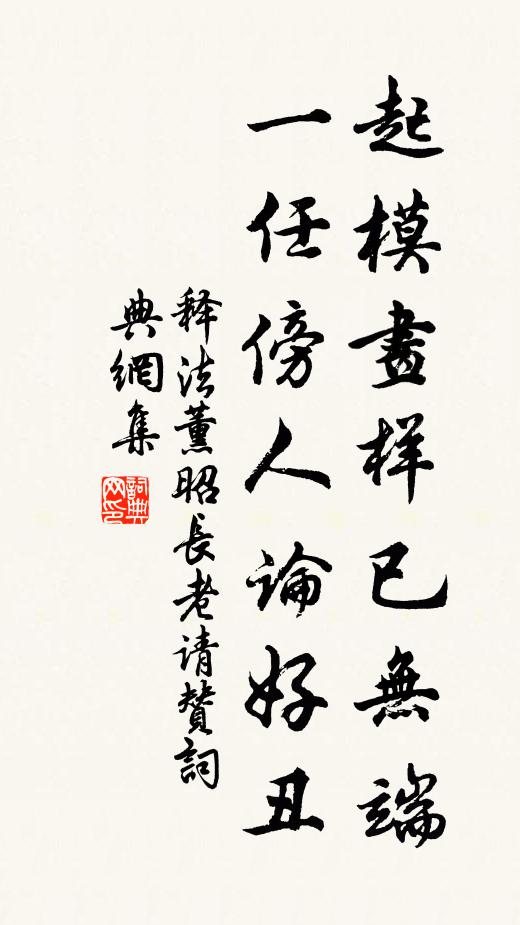 起模畫样已無端
一任傍人論好丑
释法薰昭長老请贊詞
典網集
詞典
网印